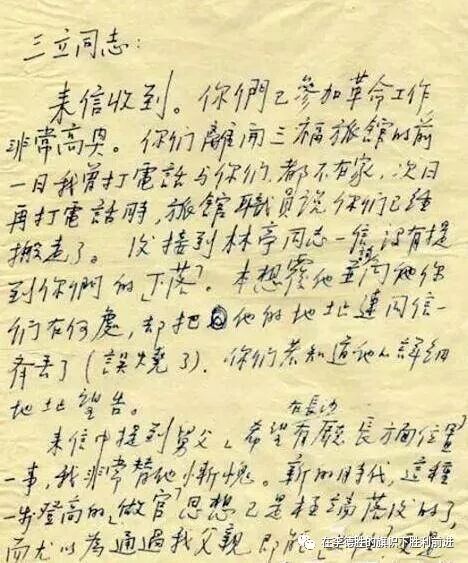 三立同志：
来信收到。你們已參加革命工作
非常高興。你们離開三福旅館的前
一日我曾打電話与你们，都不在家，次日
再打電話時，旅館職員說你们已經
搬走了。後接到林亭同志一信，沒有提
到你們的「下落」。本想覆他並詢问他你
們在何處，却把他的地址連同信一
齊丢了（誤燒了）。你们若知道他的詳細
地址望告。
在長沙
来信中提到舅父「希望有廳長方面位置」
一事，我非常替他慚愧。新的時代，這種
一步登高的「做官」思想已是極端落後的了，
而尤以為通過我父親即能「上任」，更是
在李德胜的旗帜下胜利前进